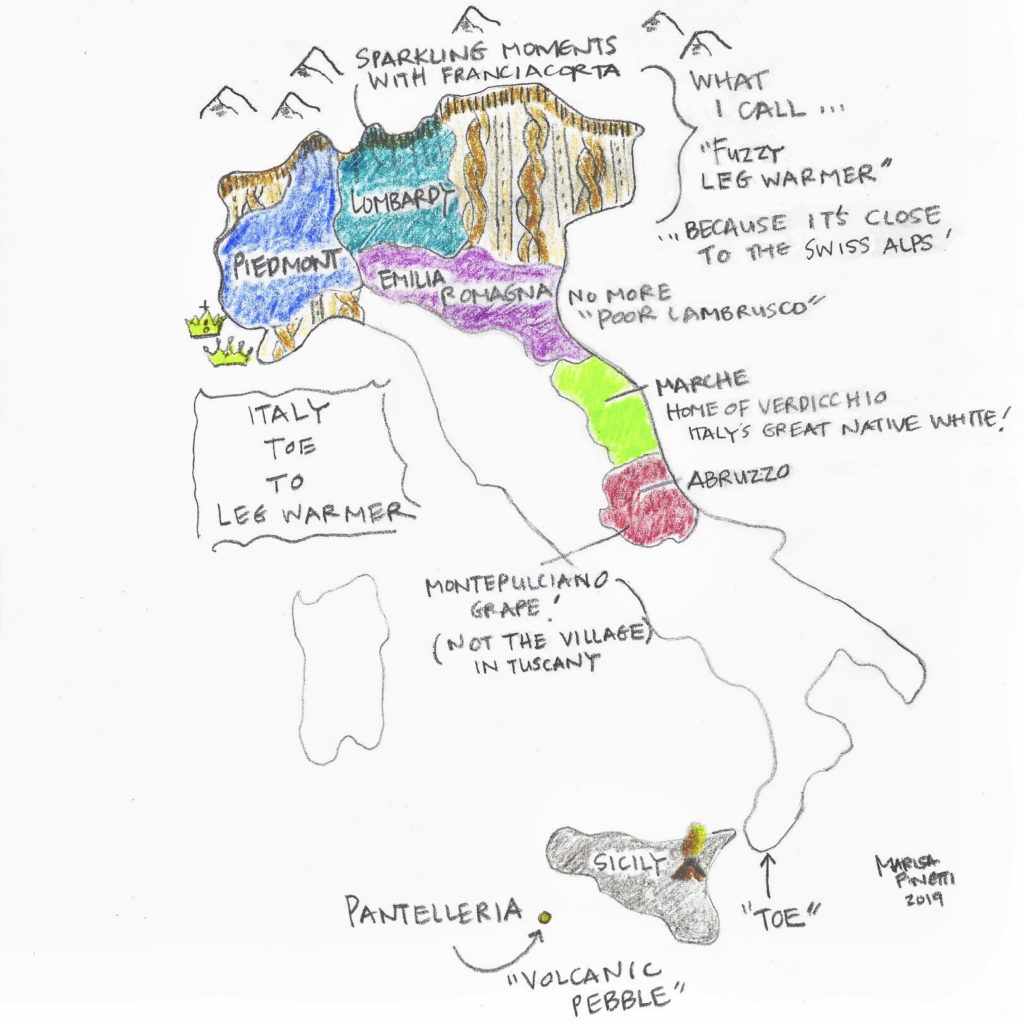 SPARKLING MOMENTS
WITH FRANCIACORTA
WHAT
I CALL ...
"FUZZY
LEG WARMER"
"BECAUSE IT'S CLOSE
TO THE SWISS ALPS!
LOMBARDY
PIEDMONT
EMILIA
ROMAGNA
NO MORE
"POOR LAMBRUSCO"
MARCHE
HOME OF VERDICCHIO
ITALY'S GREAT NATIVE WHITE!
ITALY
TOE
TO
LEG WARMER
ABRUZZO
MONTEPULCIANO
GRAPE!
(NOT THE VILLAGE)
IN TUSCANY
SICILY
MARISA
FINETTI
2019
"TOE"
PANTELLERIA
"VOLCANIC
PEBBLE"